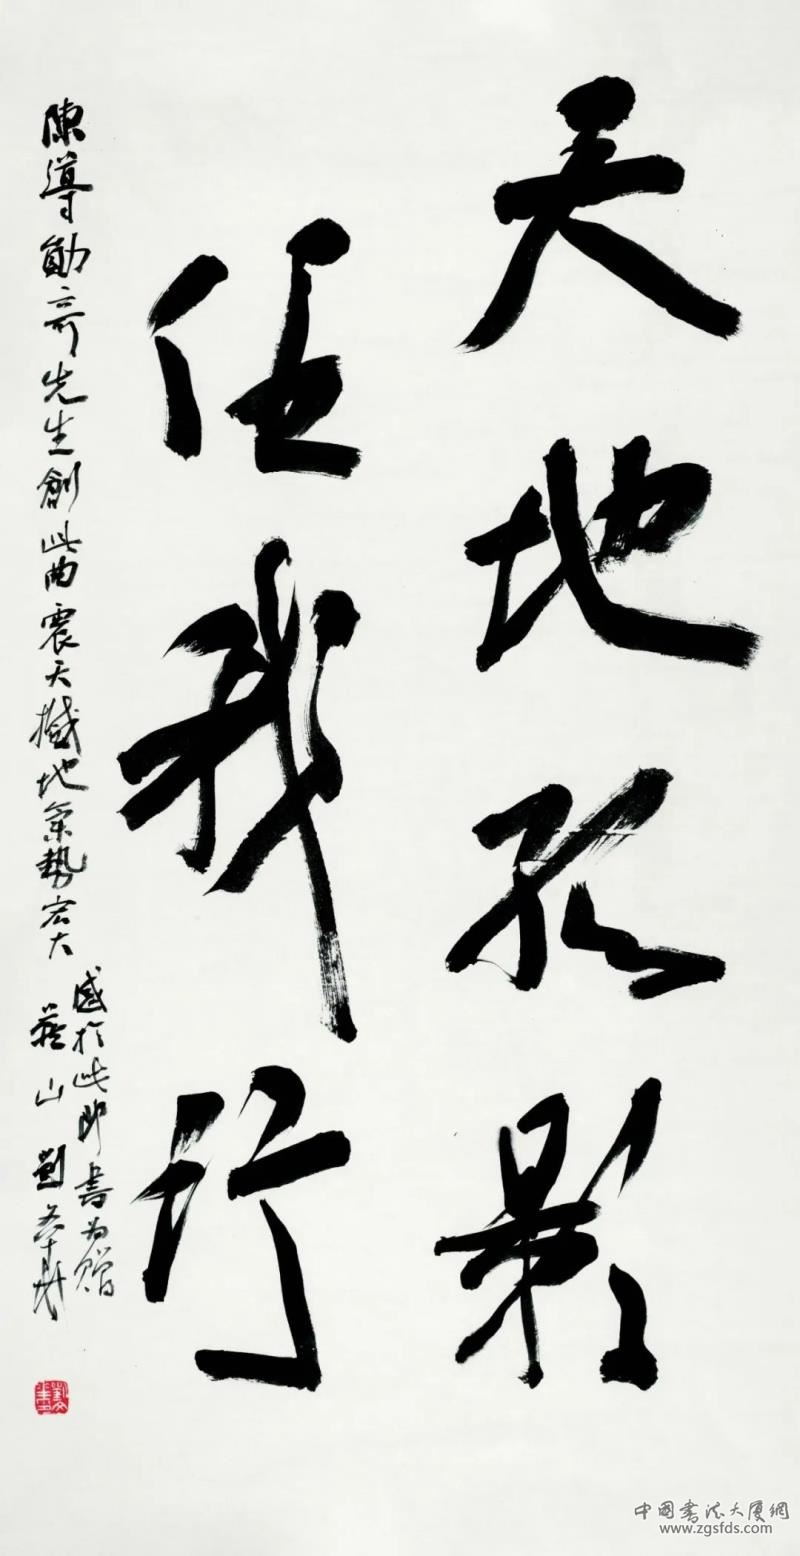 天地孤影
任我行
陳導勛奇先生創此曲震天撼地氣勢宏大
感於此即書為贈
燕山劉
中国書法大厦網
www.zgsfds.com